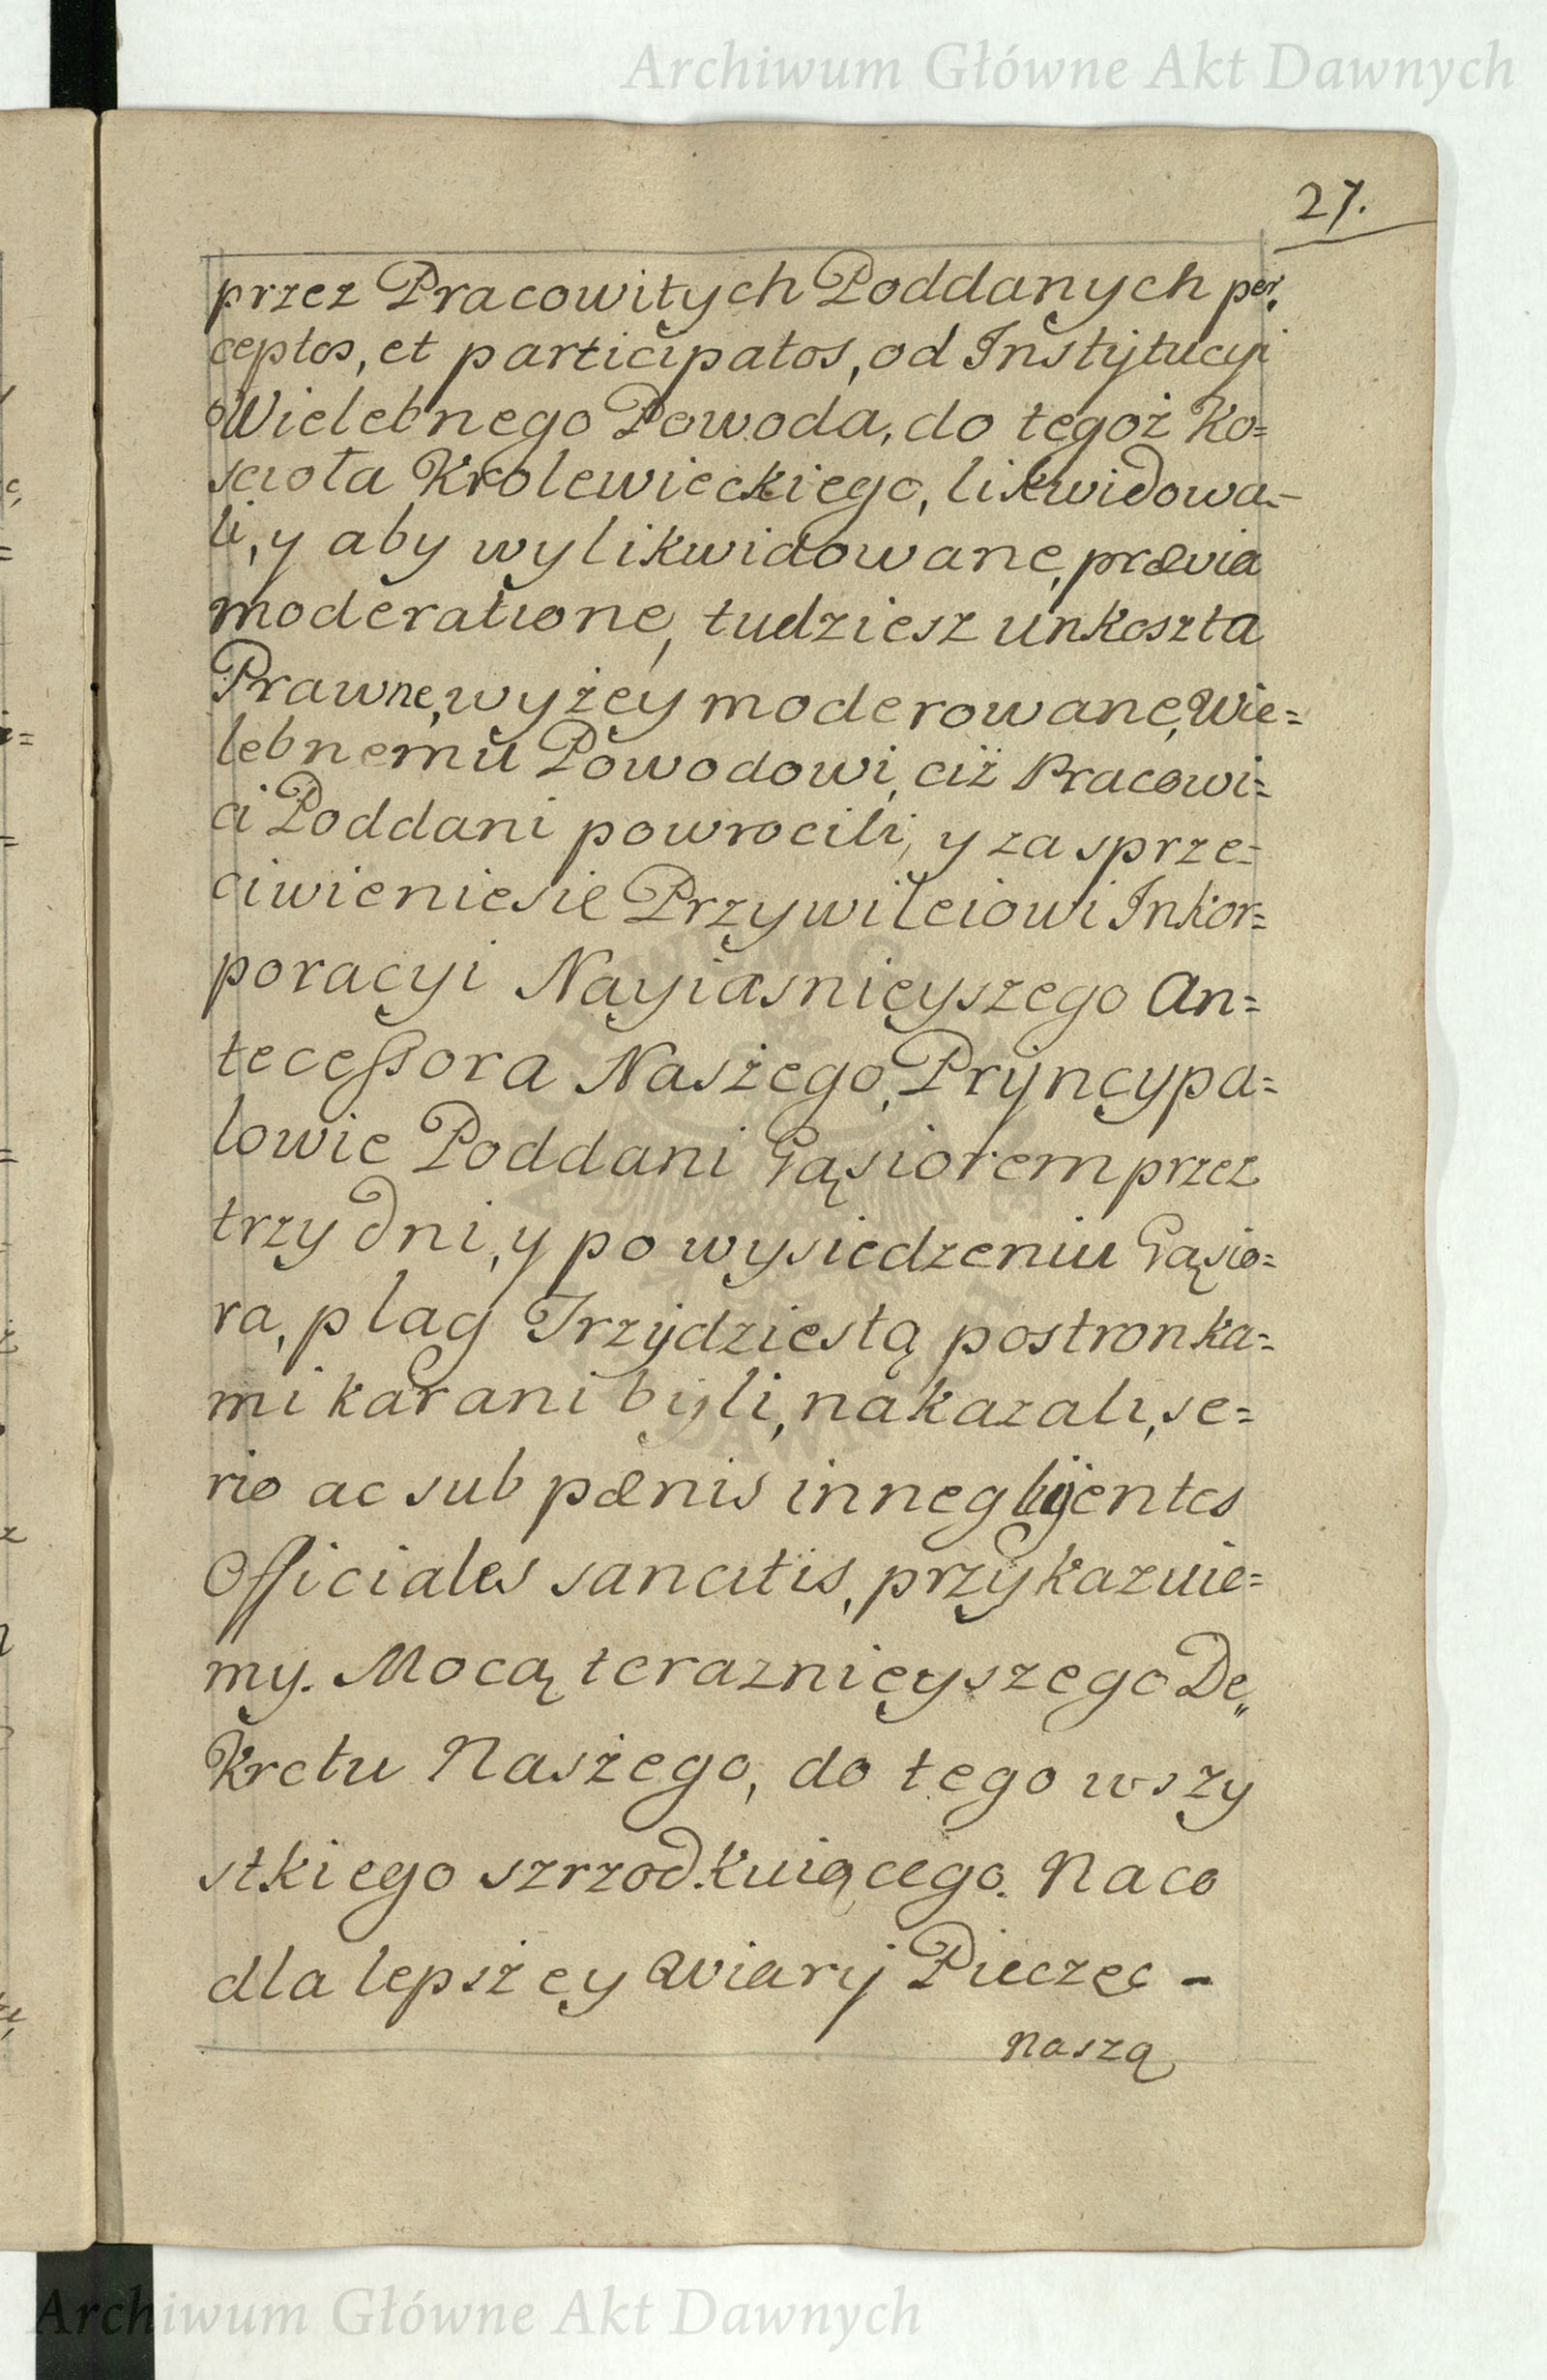 Archiwum Główne Akt Dawnych
27.
przez Pracowitych Poddanych per,
ceptos, et participatos, od Instÿtucÿi
Wielebnego Powoda, do tegoż Ko=
scioła Krolewieckiego, likwidowa-
li, y aby wylikwidowane, prævia
moderatione, tudziesz unkoszta
Prawne, wyżey moderowane, Wie=
lebnemu Powodowi, ciż Pracowi=
ci Poddani powrocili, y za sprze=
ciwieniesie Przywileiowi Inkor=
poracyi Nayiasnieyszego An=
teceßora Naszego, Prÿncypa=
lowie Poddani Gąsiorem przez
trzy dni, y po wysiedzeniu Gąsio=
ra, plag Trzÿdziestą postronka=
mi karani bÿli, nakazali, se=
rio ac sub pænis in neglijentes
Officiales sancitis, przykazuie=
my. Mocą teraznieyszego De„
Kretu Naszego, do tego wszy
stkiego szrzodkuiącego. Na co
dla lepszey Wiary Pieczęc -
naszą
Archiwum Główne Akt Dawnych